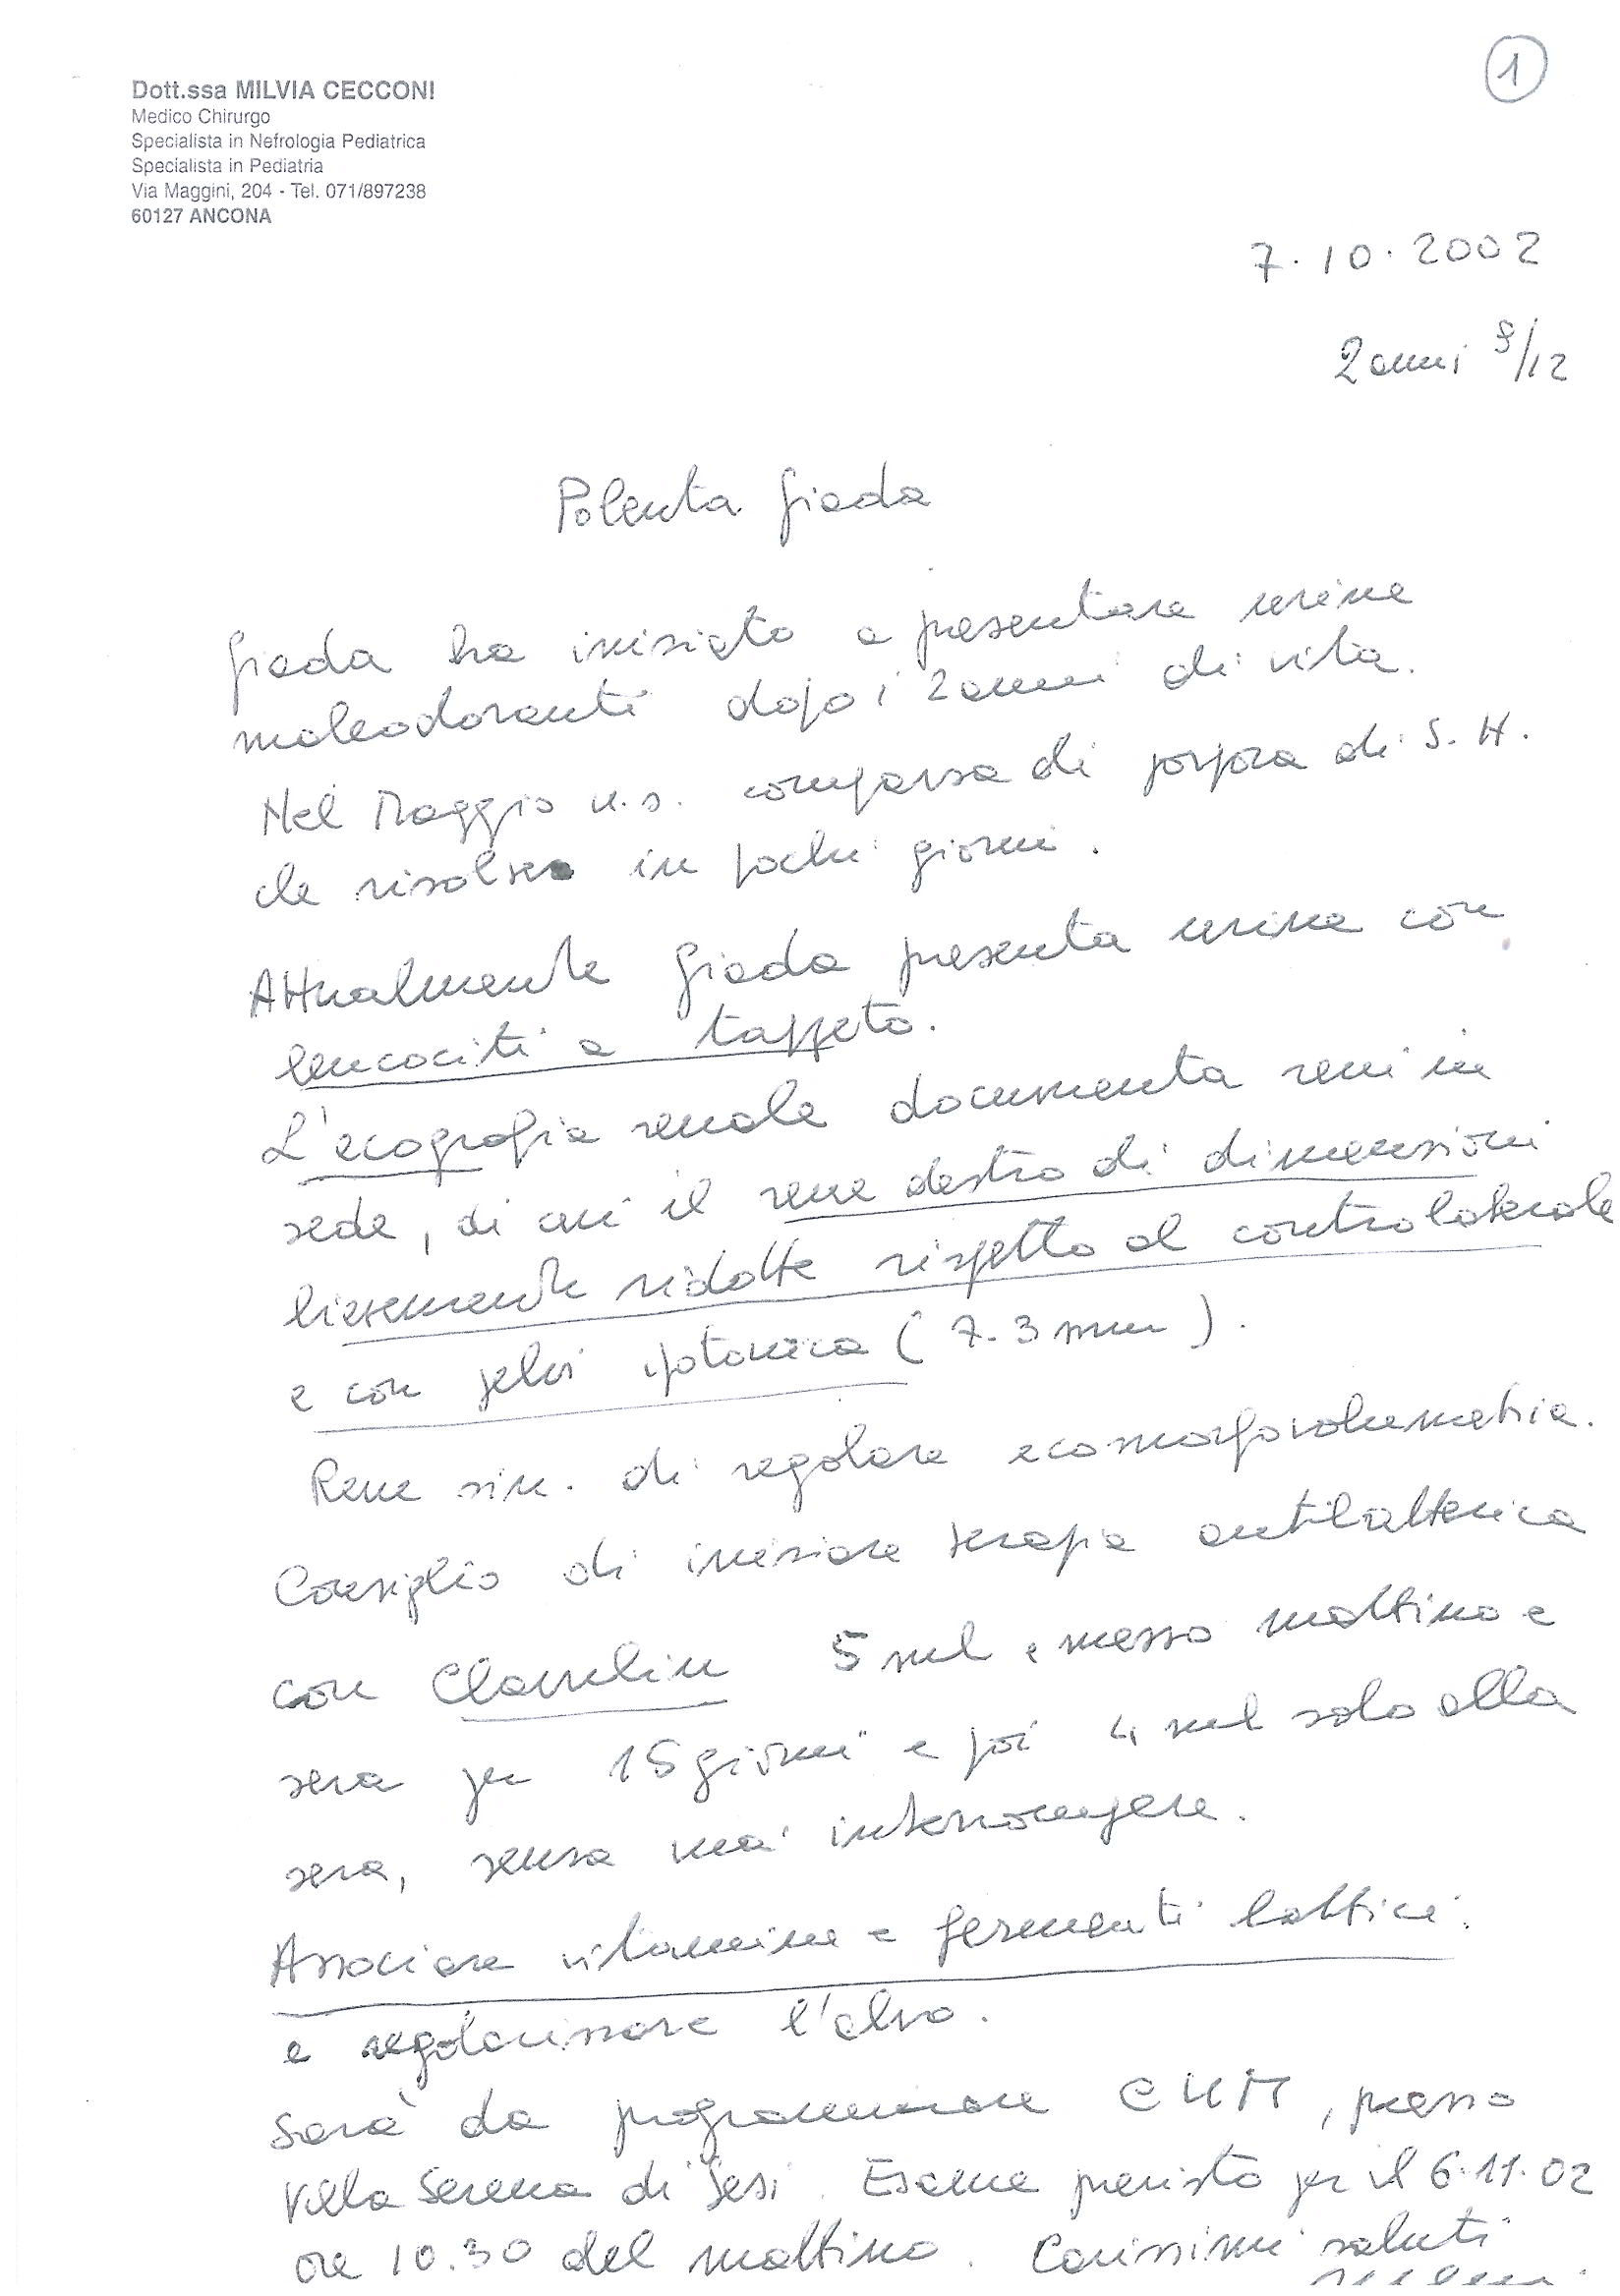 1
Dott.ssa MILVIA CECCONI
Medico Chirurgo
Specialista in Nefrologia Pediatrica
Specialista in Pediatria
Via Maggini, 204 - Tel. 071/897238
60127 ANCONA
7.10.2002
2 anni 9/12
Polenta Giada
Giada ha iniziato a presentare urine
maleodoranti dopo i 2 anni di vita.
Nel Maggio u.s. comparsa di porpora di S.H.
che risolse in pochi giorni.
Attualmente Giada presenta urine con
leucociti a tappeto.
L'ecografia renale documenta reni in
sede, di cui il rene destro di dimensioni
lievemente ridotte rispetto al controlaterale
e con pelvi ipotonica (7.3 mm).
Rene sin. di regolare ecomorfovolumetria.
Consiglio di iniziare terapia antibatterica
con Clavulin 5 ml e mezzo mattino e
sera per 15 giorni e poi 4 ml solo alla
sera, senza mai interrompere.
Associare vitamine e fermenti lattici.
e regolarizzare l'alvo.
Sarà da programmare CUM, presso
Villa Serena di Jesi. Esame previsto per il 6.11.02
ore 10.30 del mattino. Carissimi saluti